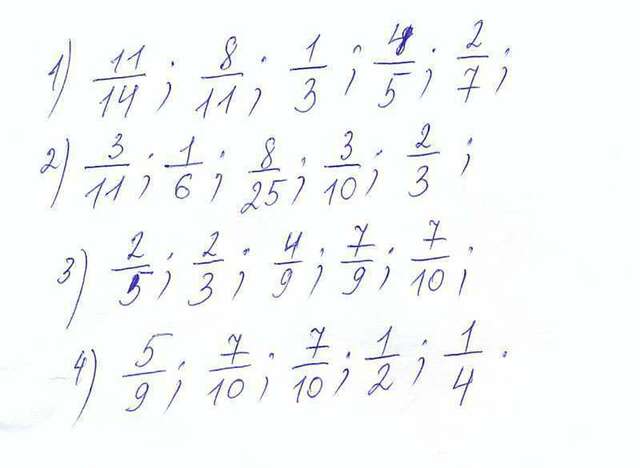 1) 11/14; 8/11; 1/3; 4/5; 2/7;
2) 3/11; 1/6; 8/25; 3/10; 2/3;
3) 2/5; 2/3; 4/9; 7/9; 7/10;
4) 5/9; 7/10; 7/10; 1/2; 1/4.